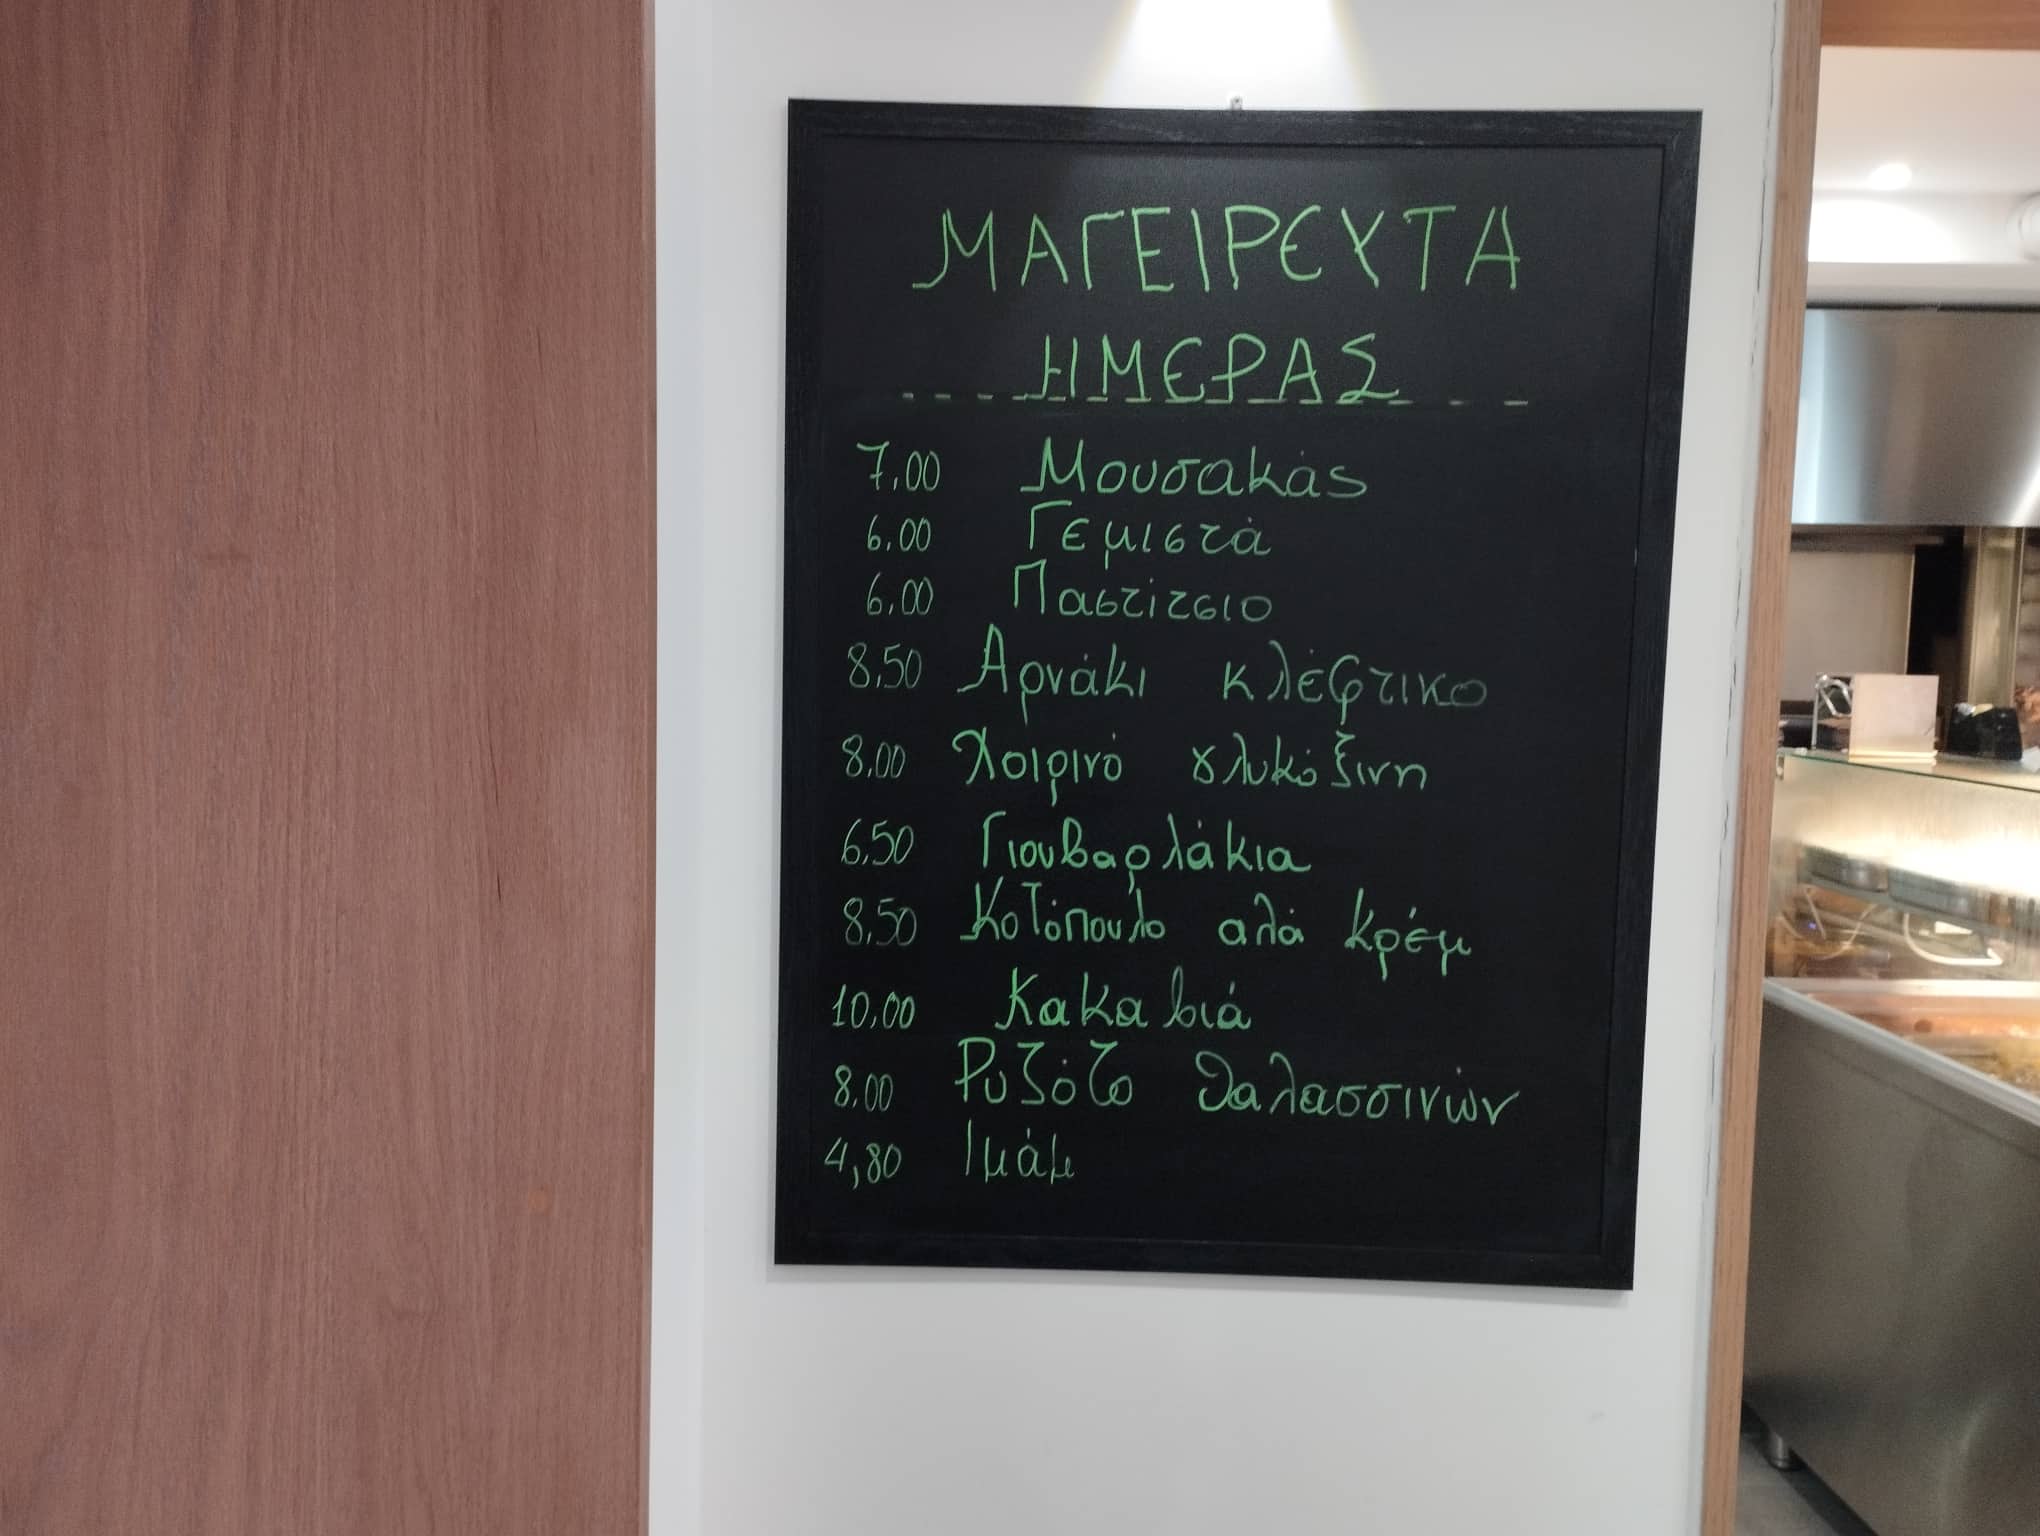 ΜΑΓΕΙΡΕΥΤΑ
ΗΜΕΡΑΣ
7,00 Μουσακάς
6,00 Γεμιστά
6,00 Παστίτσιο
8,50 Αρνάκι κλέφτικο
8,00 Χοιρινό γλυκόξινη
6,50 Γιουβαρλάκια
8,50 Κοτόπουλο αλά κρέμ
10,00 Κακαβιά
8,00 Ρυζότο θαλασσινών
4,80 Ιμάμ